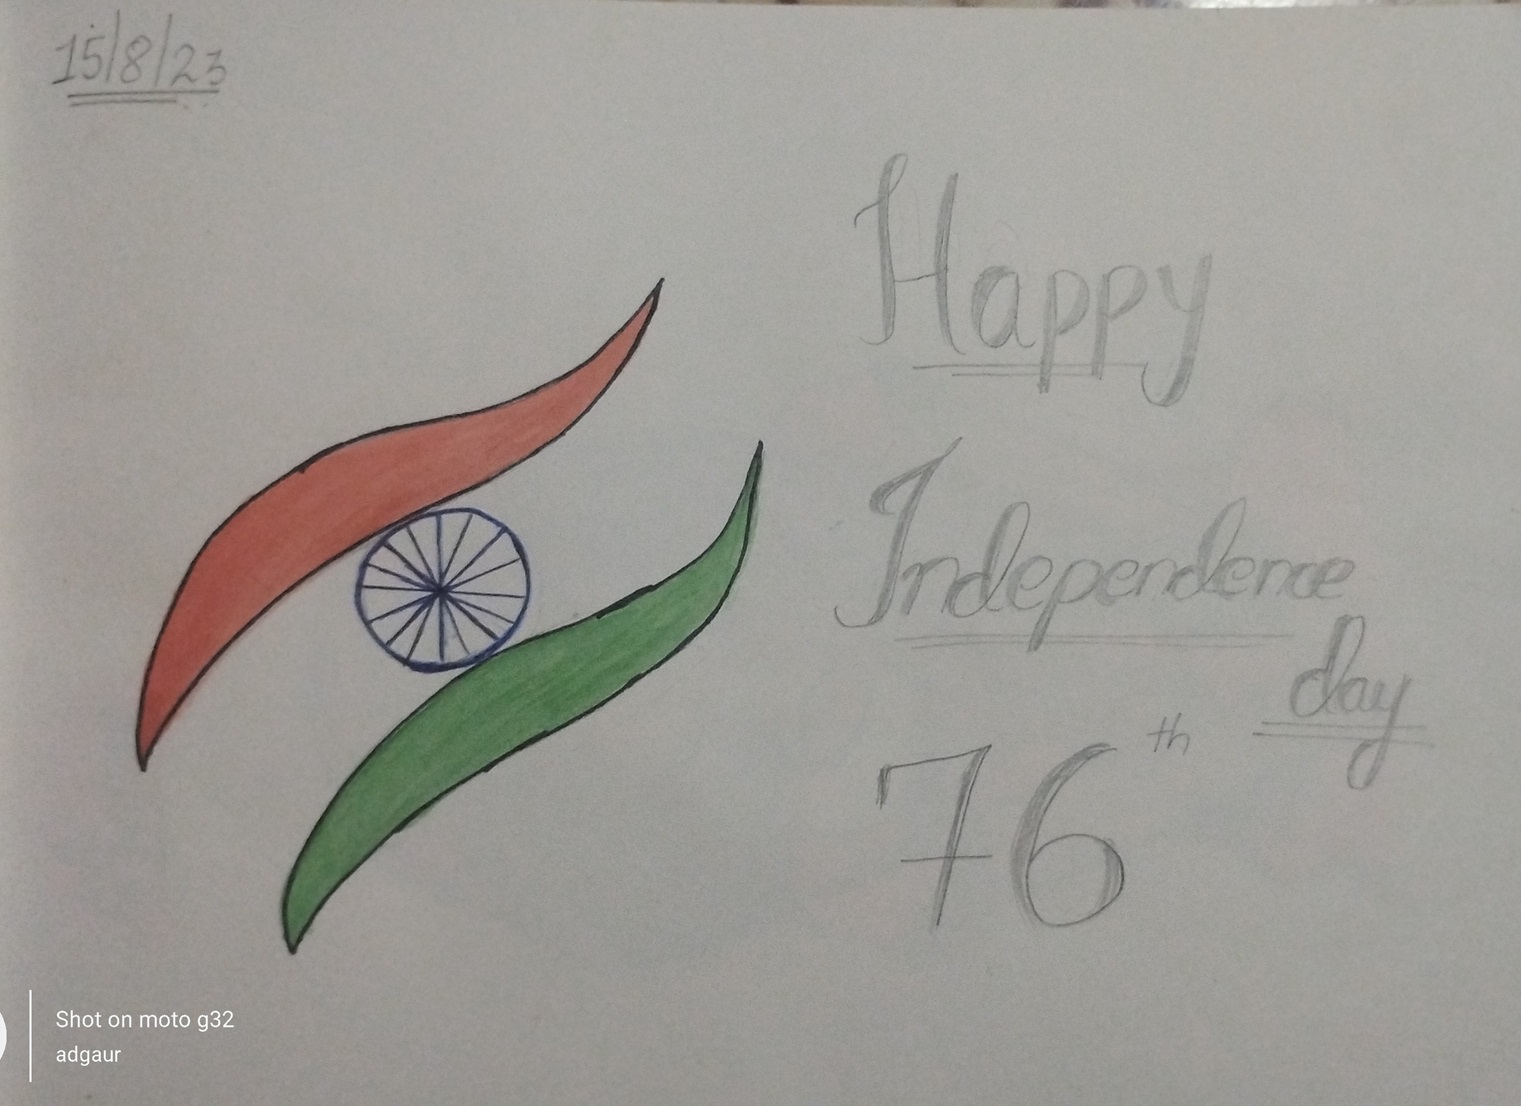 15/8/23
Happy
Independence
day
76th
Shot on moto g32
adgaur